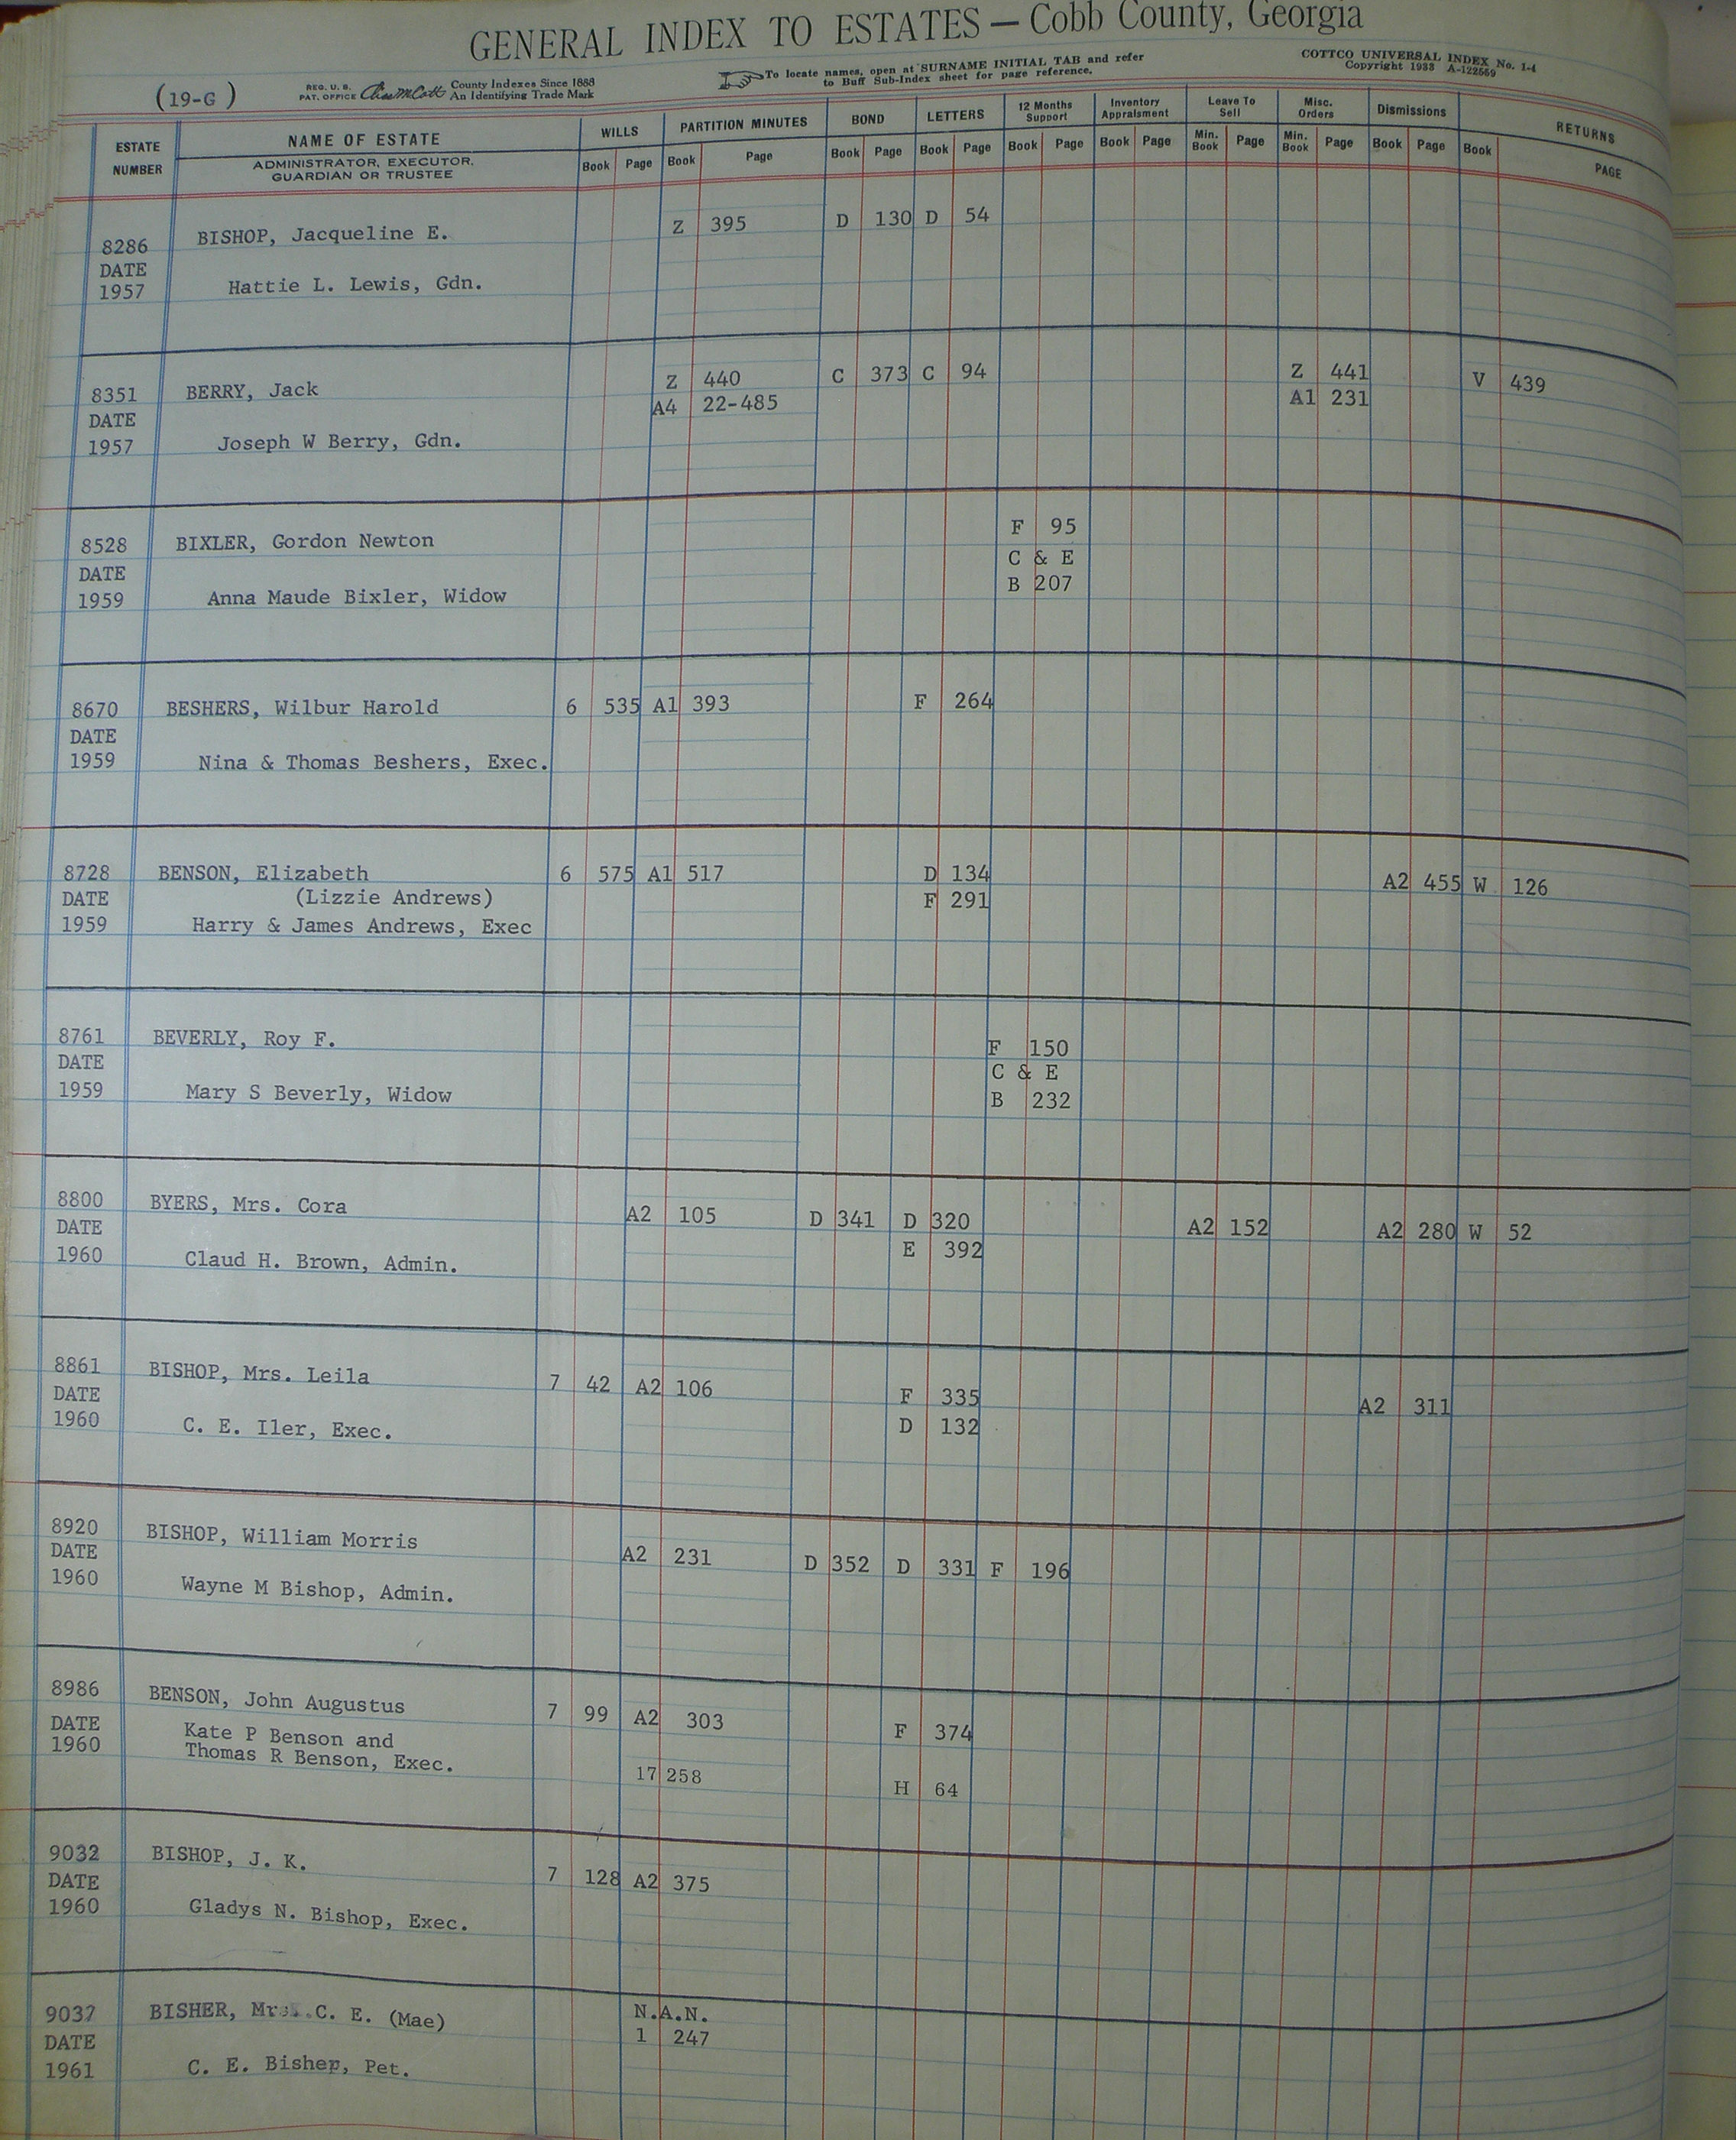 GENERAL INDEX TO ESTATES — Cobb County, Georgia
(19-G)
REG. U. S. PAT. OFFICE County Indexes Since 1888 An Identifying Trade Mark
To locate names, open at SURNAME INITIAL TAB and refer to Buff Sub-Index sheet for page reference.
COTTCO UNIVERSAL INDEX No. 1-4
Copyright 1933 A-122559
ESTATE NUMBER
NAME OF ESTATE
ADMINISTRATOR, EXECUTOR, GUARDIAN OR TRUSTEE
WILLS Book Page
PARTITION MINUTES Book Page
BOND Book Page
LETTERS Book Page
12 Months Support Book Page
Inventory Appraisment Book Page
Leave To Sell Min. Book Page
Misc. Orders Min. Book Page
Dismissions Book Page
RETURNS Book PAGE
8286 BISHOP, Jacqueline E. Z 395 D 130 D 54
DATE
1957 Hattie L. Lewis, Gdn.
8351 BERRY, Jack Z 440 C 373 C 94 Z 441 V 439
DATE A4 22-485 A1 231
1957 Joseph W Berry, Gdn.
8528 BIXLER, Gordon Newton F 95
DATE C & E
1959 Anna Maude Bixler, Widow B 207
8670 BESHERS, Wilbur Harold 6 535 A1 393 F 264
DATE
1959 Nina & Thomas Beshers, Exec.
8728 BENSON, Elizabeth 6 575 A1 517 D 134 A2 455 W 126
DATE (Lizzie Andrews) F 291
1959 Harry & James Andrews, Exec
8761 BEVERLY, Roy F. F 150
DATE C & E
1959 Mary S Beverly, Widow B 232
8800 BYERS, Mrs. Cora A2 105 D 341 D 320 A2 152 A2 280 W 52
DATE E 392
1960 Claud H. Brown, Admin.
8861 BISHOP, Mrs. Leila 7 42 A2 106 F 335 A2 311
DATE D 132
1960 C. E. Iler, Exec.
8920 BISHOP, William Morris A2 231 D 352 D 331 F 196
DATE
1960 Wayne M Bishop, Admin.
8986 BENSON, John Augustus 7 99 A2 303 F 374
DATE Kate P Benson and
1960 Thomas R Benson, Exec. 17 258 H 64
9032 BISHOP, J. K. 7 128 A2 375
DATE
1960 Gladys N. Bishop, Exec.
9037 BISHER, C. E. (Mae) N.A.N.
DATE 1 247
1961 C. E. Bisher, Pet.